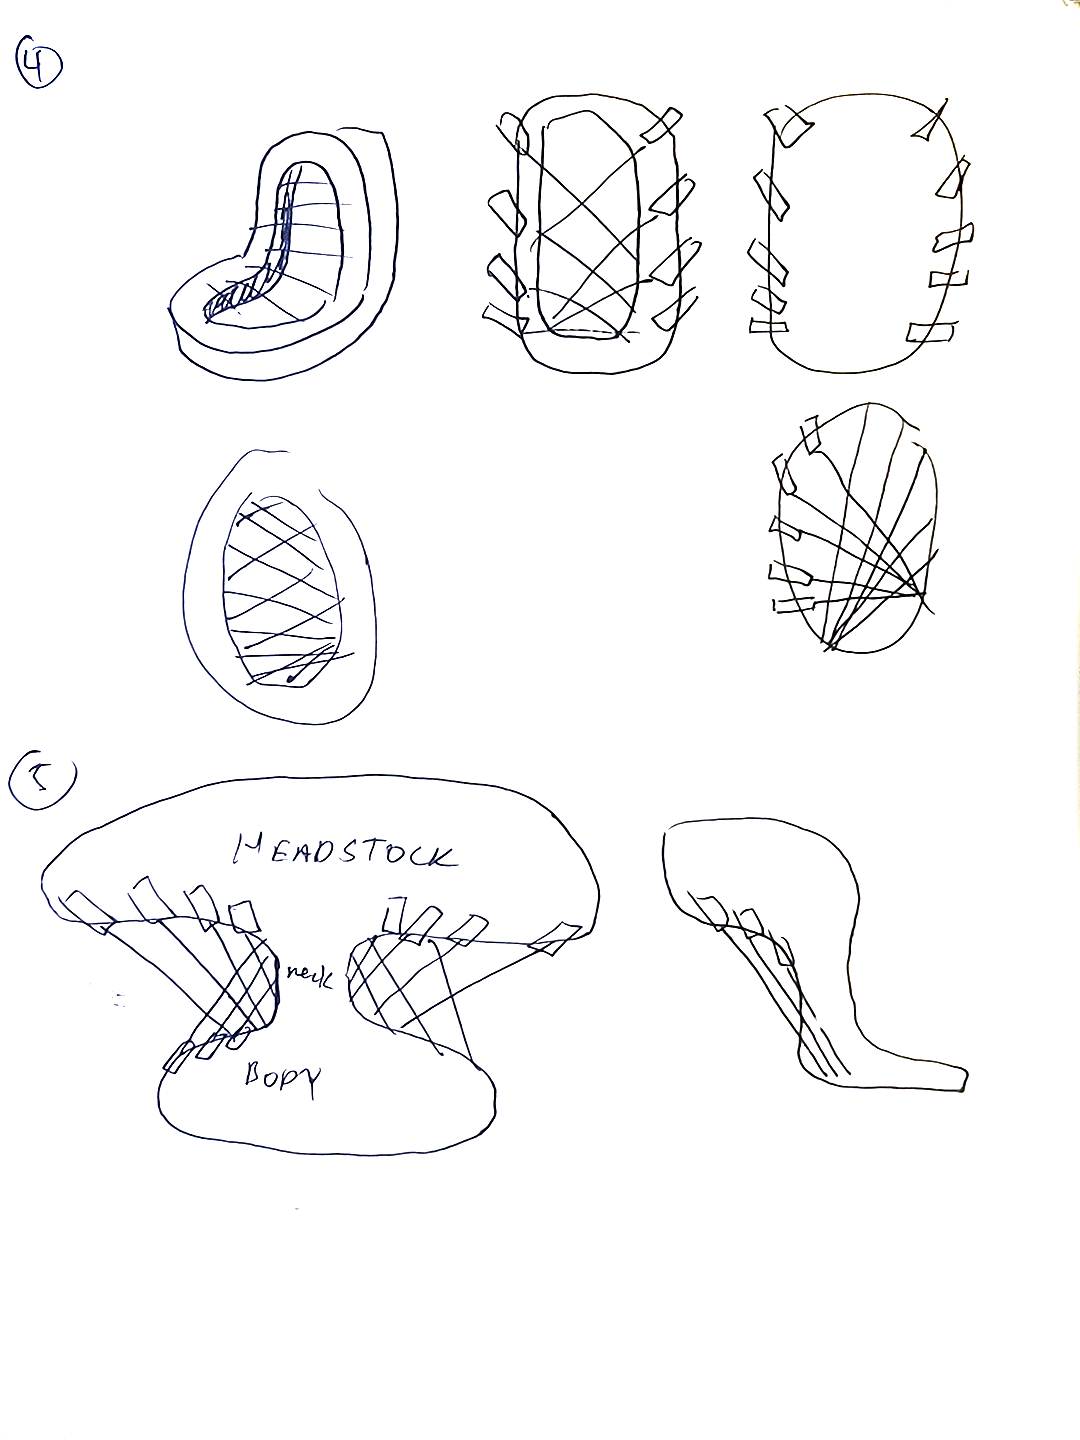 4
5
HEADSTOCK
neck
BODY